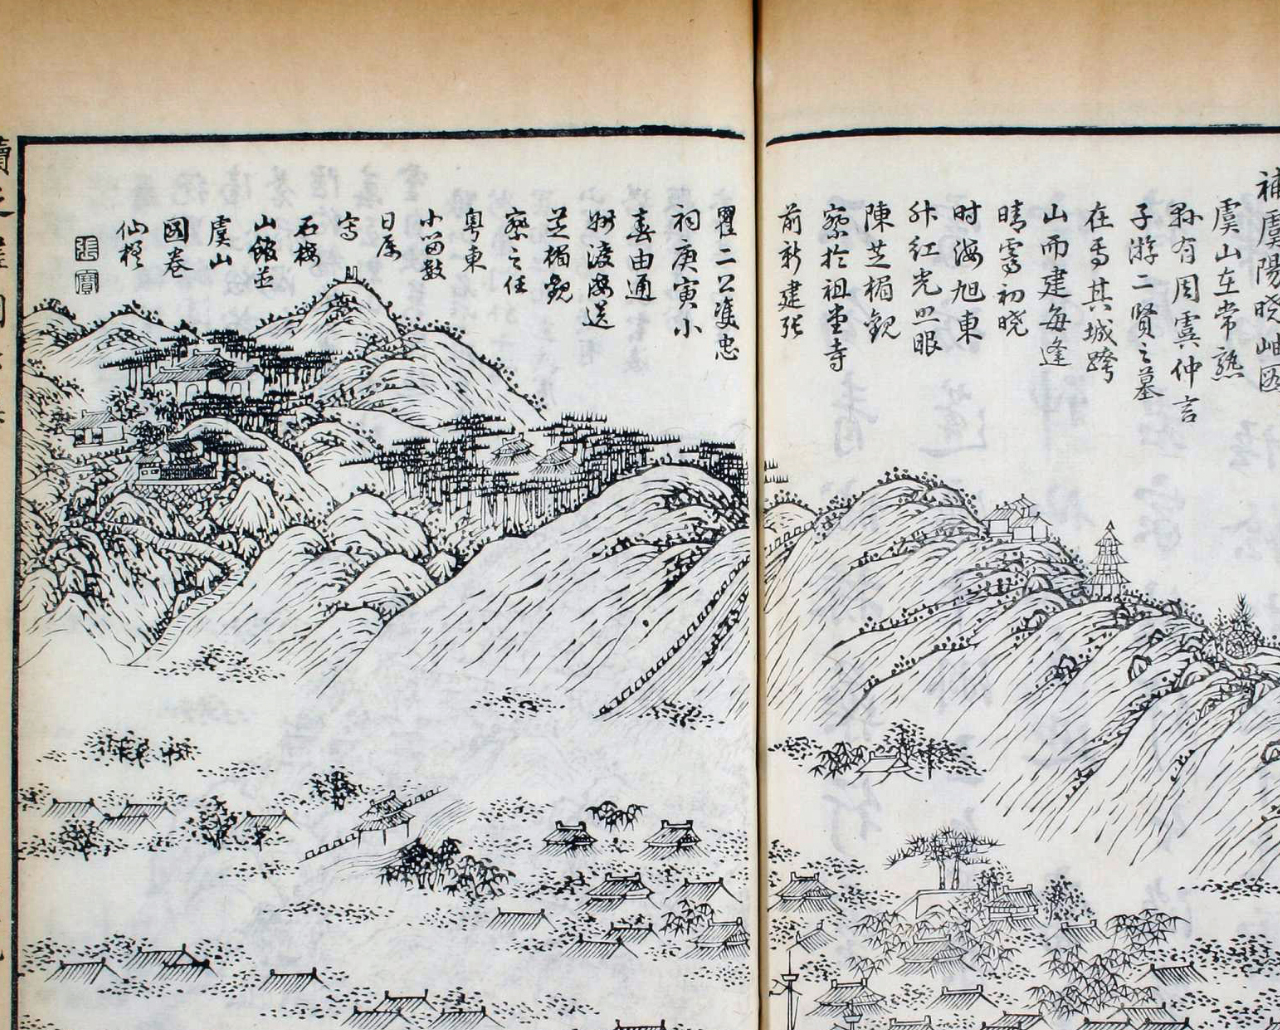 補虞陽曉岫圖
虞山在常熟
縣有周虞仲言
子游二賢之墓
在焉其城跨
山而建每逢
晴霽初曉
时海旭東
升紅光照眼
陳芝楣觀
察於祖堂寺
前新建張
瞿二公雙忠
祠庚寅小
春由通
州渡海送
芝楣觀
察之任
粵東
小留數
日屬
寫
石梅
山館並
虞山
圖卷
仙槎
張寶